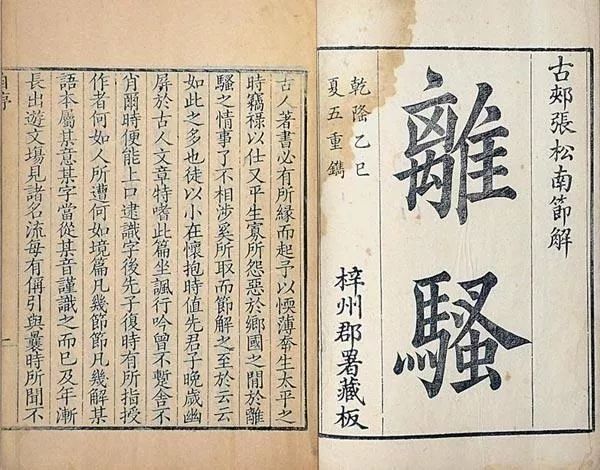 古郟張松南節解
離騷
乾隆乙巳
夏五重鐫
梓州郡署藏板
古人著書必有所緣而起予以愞薄奉生太平之
時竊祿以仕又平生寡所怨惡於鄉國之閒於離
騷之情事了不相涉奚所取而節解之至於云云
如此之多也徒以小在懷抱時值先君子晚歲幽
屏於古人文章特嗜此篇坐諷行吟曾不蹔舍不
肖爾時便能上口逮識字後先子復時有所指授
作者何如人所遭何如境篇凡幾節節凡幾解某
語本屬某意某字當從某音謹識之而已及年漸
長出遊文場見諸名流每有偁引與曩時所聞不